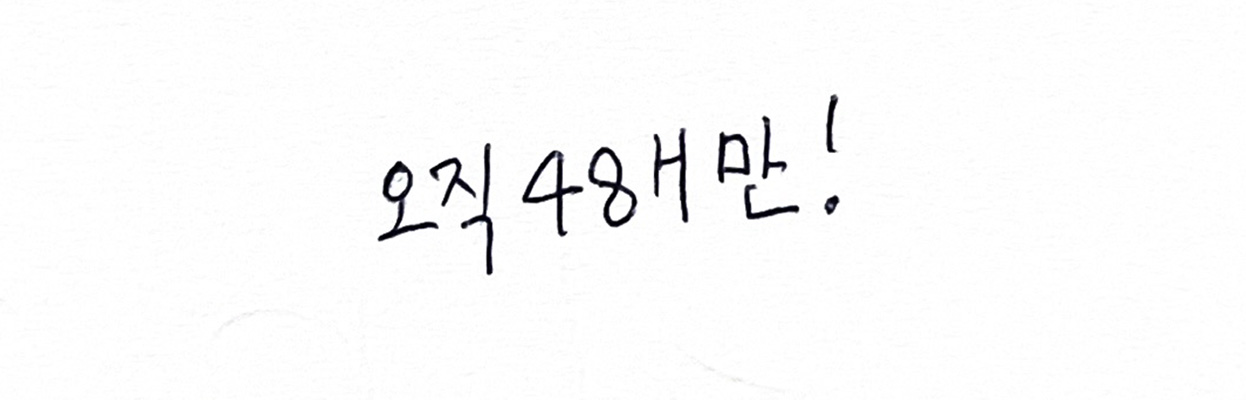 오직 48H 만!